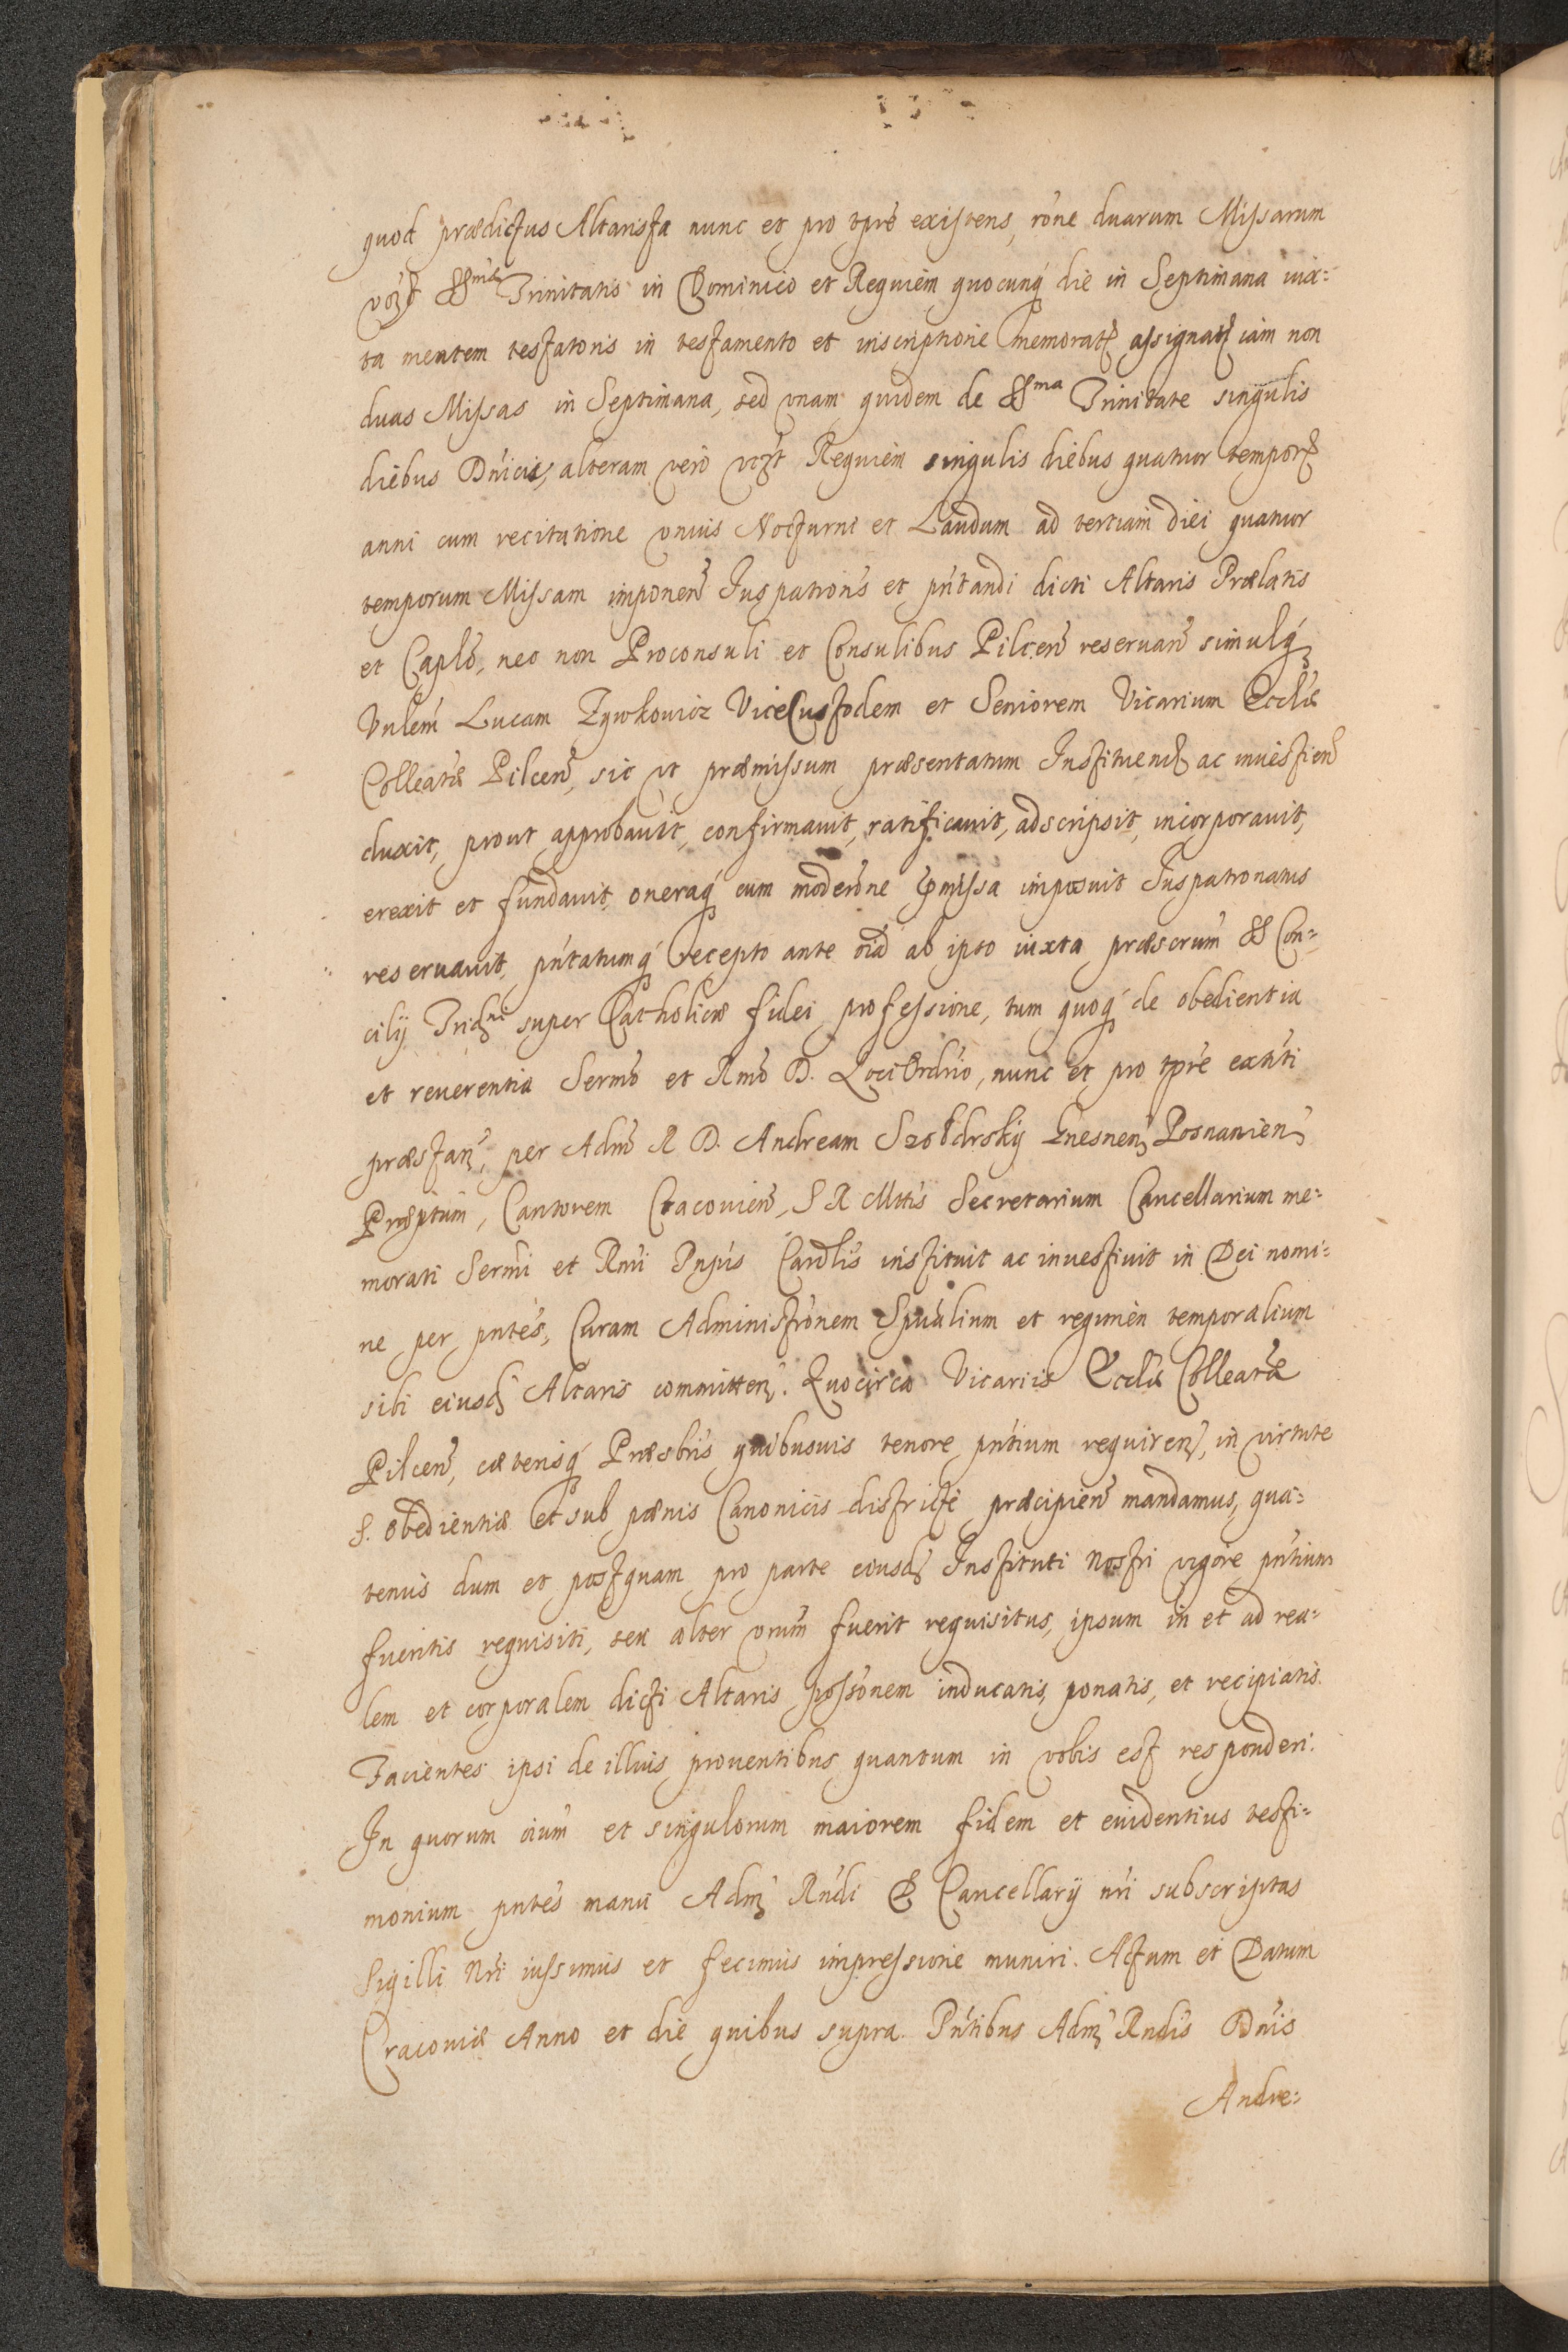 quod prædictus Altarista nunc et pro tpre existens, rone duarum Missarum
vozt SSmæ Trinitatis in Dominico et Requiem quocunq die in Septimana iux=
ta mentem testatoris in testamento et inscriptione memorat assignat iam non
duas Missas in Septimana, sed vnam quidem de SSma Trinitate singulis
diebus Dnicis, alteram vero vozt Requiem singulis diebus quatuor tempor
anni cum recitatione vnius Nocturni et Laudum ad tertiam diei quatuor
temporum Missam imponen Juspatrons et pntandi dicti Altaris Prælatis
et Caplo, nec non Proconsuli et Consulibus Pilcen reseruan simulq
Vnlem Lucam Zywkowicz ViceCustodem et Seniorem Vicarium Ecclæ
Colleatæ Pilcen, sic vt præmissum præsentatum Instituend ac inuestien
duxit, prout approbauit, confirmauit, ratificauit, adscripsit, incorporauit,
erexit et fundauit, oneraq cum moderone pmissa imposuit Juspatronatus
reseruauit, pntatumq recepto ante oia ab ipso iuxta præscrum SS Con=
cilij Tridni super Catholicæ fidei professione, tum quoq de obedientia
et reuerentia Sermo et Rmo D. Loci Ordrio, nunc et pro tpre exnti
præstan, per Adm R D. Andream Szołdrskij Gnesnen Posnanien
Præptum, Cantorem Cracouien, S R Mttis Secretarium Cancellarium me=
morati Sermi et Rmi Dnj̃s Cardlis instituit ac inuestiuit in Dei nomi=
ne per pntes, Curam Administronem Spualium et regimen temporalium
sibi eiusd Altaris committen. Quocirca Vicariis Ecclæ Colleatæ
Pilcen, cæterisq Præsbris quibusuis tenore pntium requiren, in virtute
S. Obedientiæ et sub pænis Canonicis districte præcipien mandamus, qua=
tenus dum et postquam pro parte eiusd Instituti Nostri vigore pntium
fueritis requisiti, seu alter vrum fuerit requisitus, ipsum in et ad rea=
lem et corporalem dicti Altaris possonem inducatis, ponatis, et recipiatis.
Facientes ipsi de illius prouentibus quantum in vobis est responderi.
In quorum oium et singulorum maiorem fidem et euidentius testi=
monium pntes manu Adm Rndi D Cancellarij nri subscriptas
Sigilli Nri iussimus et fecimus impressione muniri. Actum et Datum
Cracouiæ Anno et die quibus supra. Pntibus Adm Rndis Dnis
Andre=